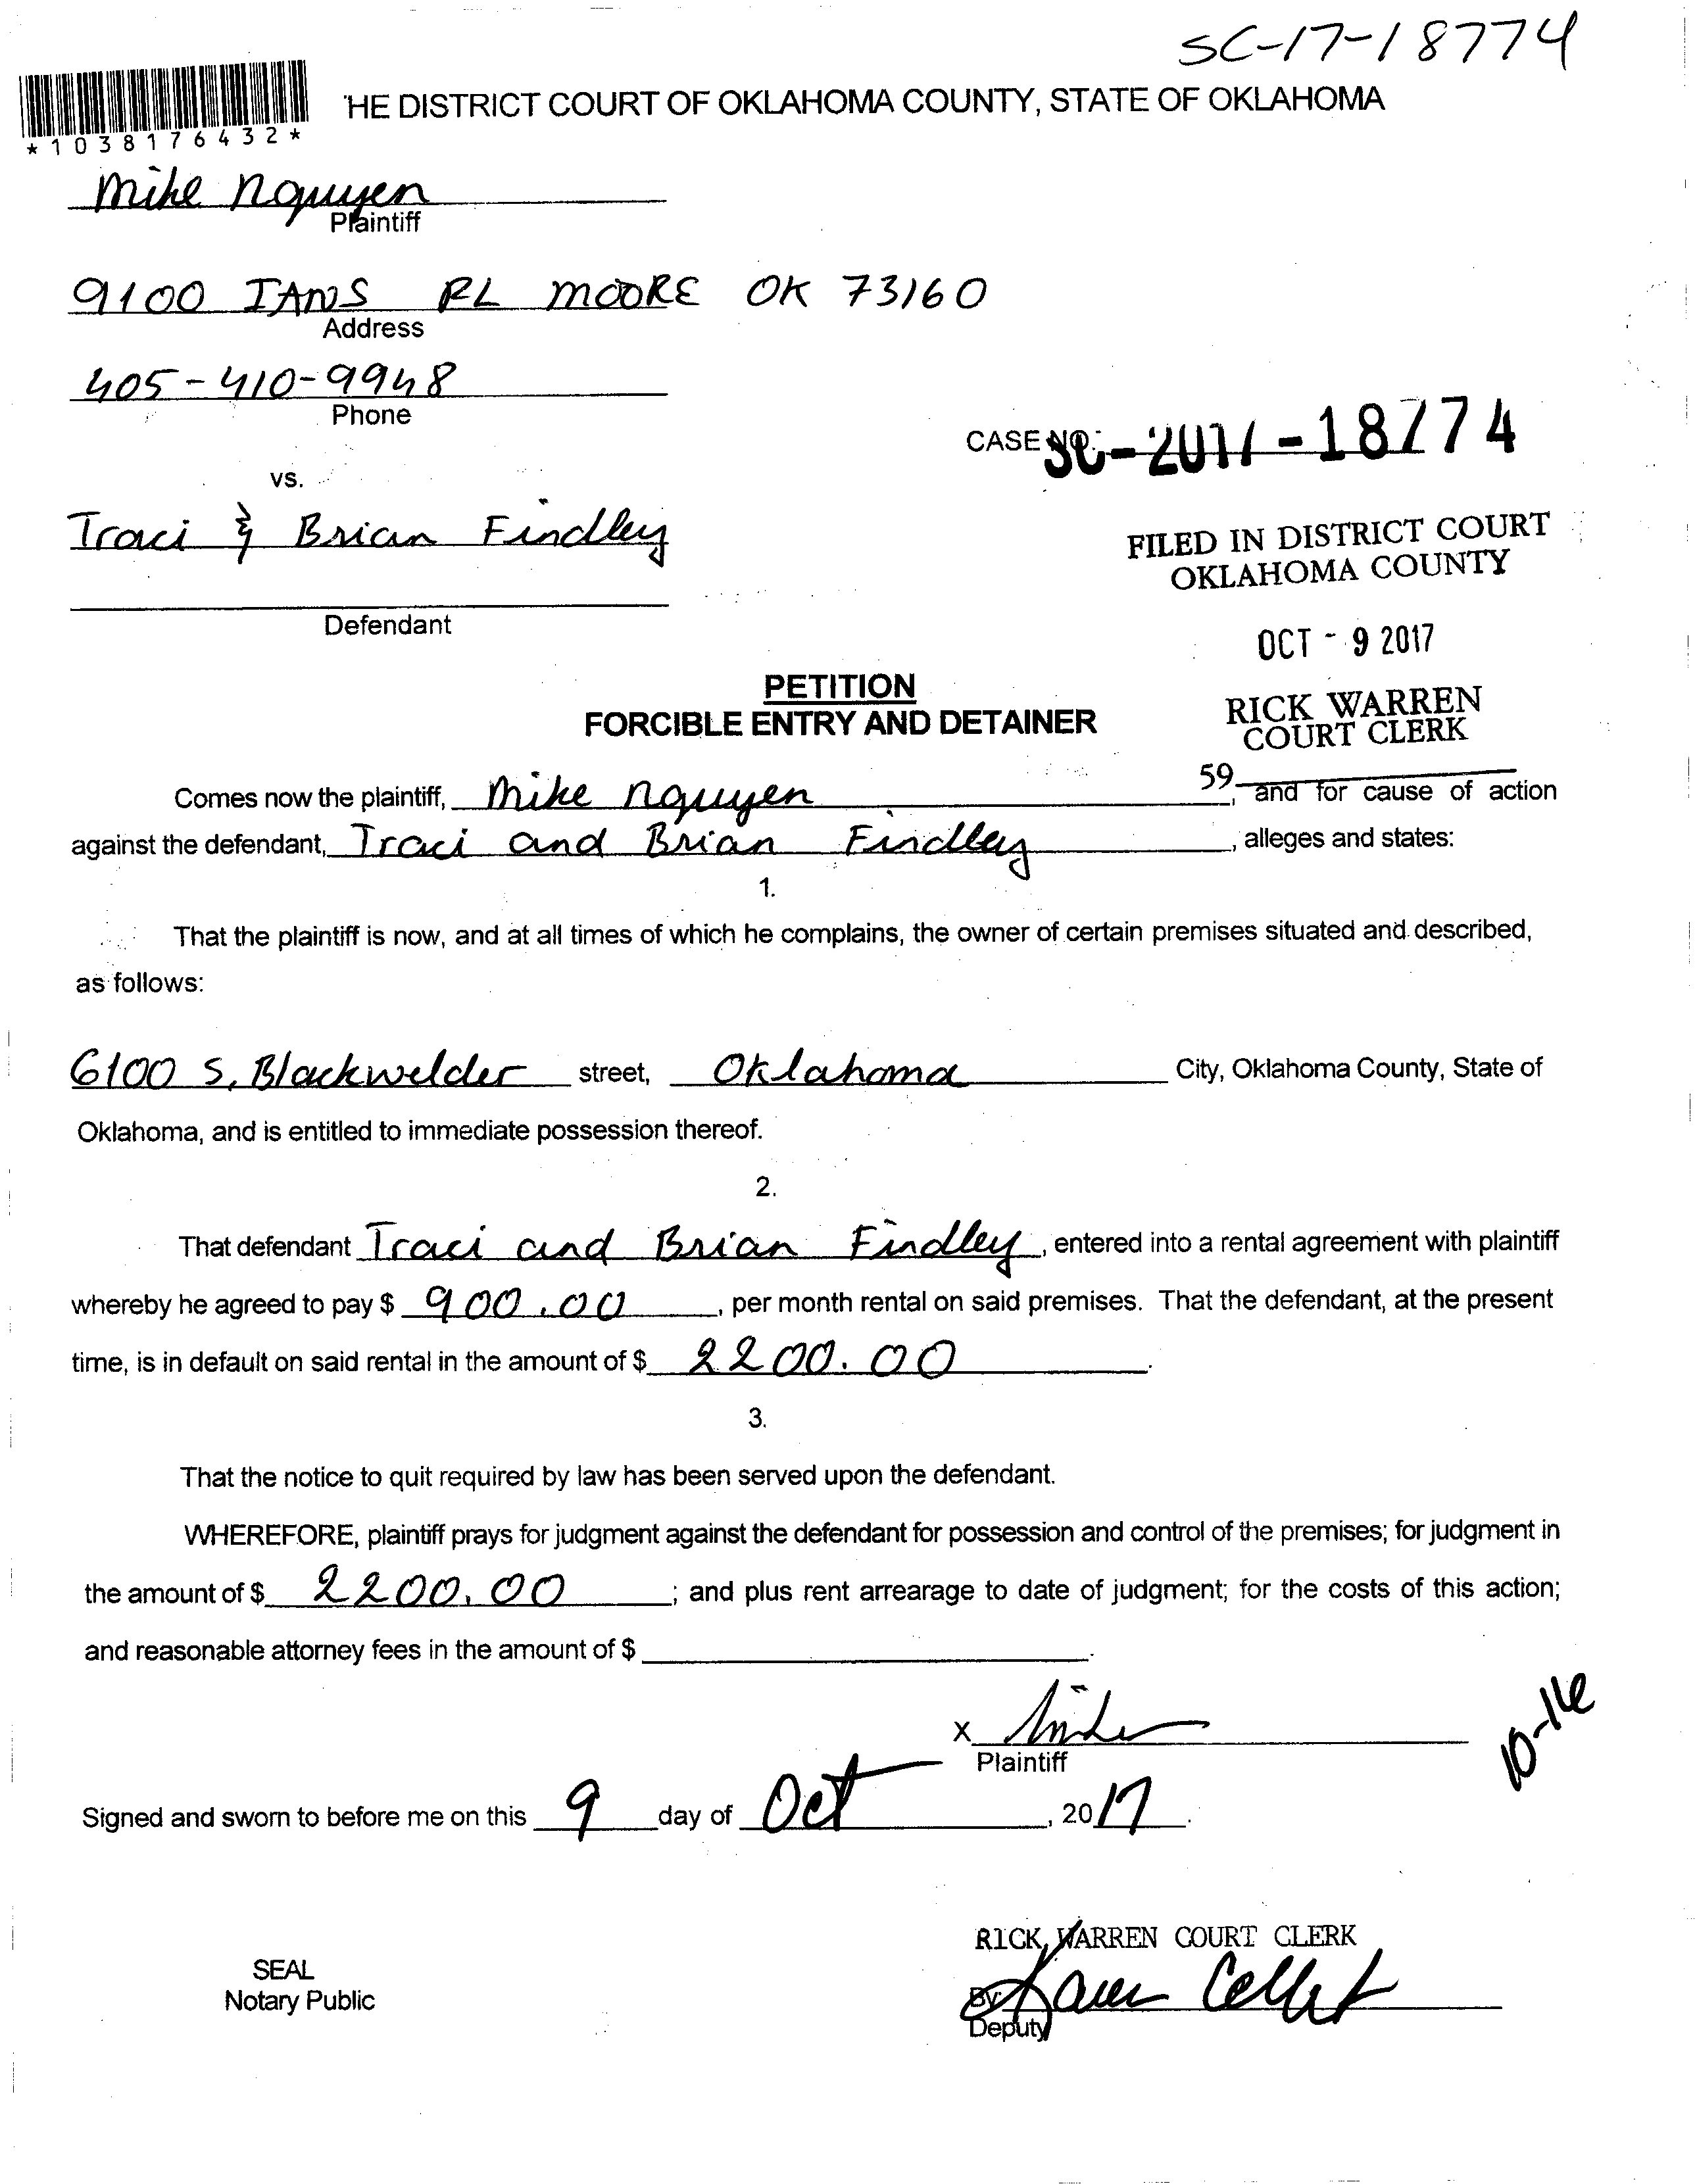 SC-17-18774
'HE DISTRICT COURT OF OKLAHOMA COUNTY, STATE OF OKLAHOMA
*1038176432*
Mike Nguyen
Plaintiff
9100 IANS PL MOORE OK 73160
Address
405-410-9948
Phone
CASE NO. SC-2017-18774
vs.
Traci & Brian Findley
FILED IN DISTRICT COURT
OKLAHOMA COUNTY
Defendant
OCT - 9 2017
PETITION
FORCIBLE ENTRY AND DETAINER
RICK WARREN
COURT CLERK
59
Comes now the plaintiff, Mike Nguyen, and for cause of action
against the defendant, Traci and Brian Findley, alleges and states:
1.
That the plaintiff is now, and at all times of which he complains, the owner of certain premises situated and described,
as follows:
6100 S. Blackwelder street, Oklahoma City, Oklahoma County, State of
Oklahoma, and is entitled to immediate possession thereof.
2.
That defendant Traci and Brian Findley, entered into a rental agreement with plaintiff
whereby he agreed to pay $ 900.00, per month rental on said premises. That the defendant, at the present
time, is in default on said rental in the amount of $ 2200.00.
3.
That the notice to quit required by law has been served upon the defendant.
WHEREFORE, plaintiff prays for judgment against the defendant for possession and control of the premises; for judgment in
the amount of $ 2200.00; and plus rent arrearage to date of judgment; for the costs of this action;
and reasonable attorney fees in the amount of $ .
X
Plaintiff
10-16
Signed and sworn to before me on this 9 day of Oct, 2017.
RICK WARREN COURT CLERK
SEAL
Notary Public
By
Deputy